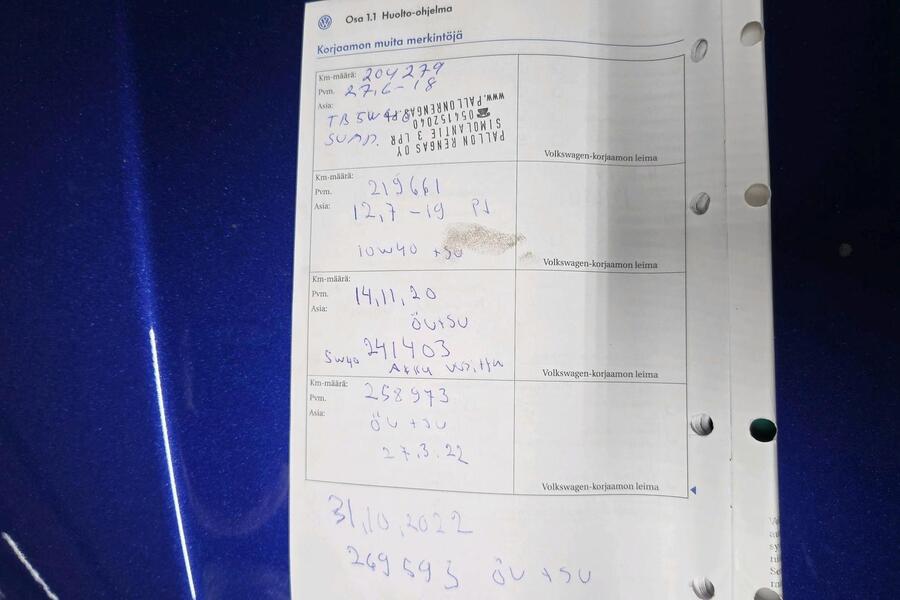 Osa 1.1 Huolto-ohjelma
Korjaamon muita merkintöjä
Km-määrä: 204279
Pvm. 27.6-18
Asia:
TB 5W40
SUOD.
PALLON RENGAS OY
SIMOLANTIE 3 LPR
054152040
www.PALLONRENGAS
Volkswagen-korjaamon leima
Km-määrä:
Pvm. 219661
Asia: 12,7-19 PJ
10W40 +SU
Volkswagen-korjaamon leima
Km-määrä:
Pvm. 14,11,20
Asia:
ÖV+SU
5W40 241403
AKKU
Volkswagen-korjaamon leima
Km-määrä:
Pvm. 258973
Asia: ÖV +SU
27.3.22
Volkswagen-korjaamon leima
31,10,2022
269593 ÖV +SU